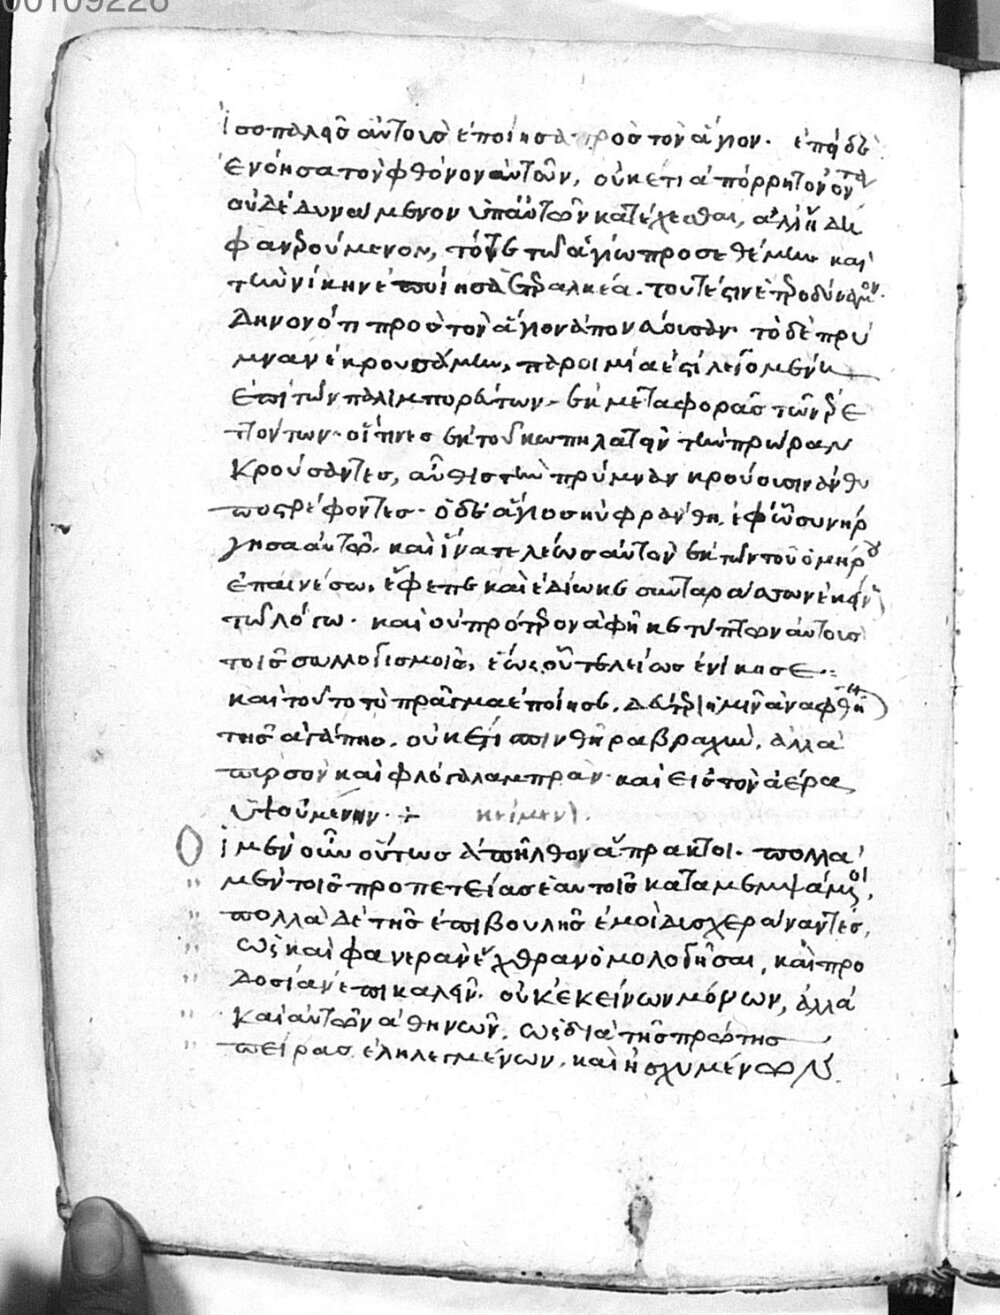 00109226
ἰσοπαλεῖς αὐτοὺς ἐποίησα πρὸς τὸν ἅγιον. ἐπεὶ δὲ
ἐνόησα τὸν φθόνον αὐτοῦν, οὐκέτι ἀπόρρητον ὄντα
οὐδὲ δυνάμενον ὑπ' αὐτῶν κατέχεσθαι, ἀλλ' ἤδη
φανερούμενον, τότε τῶ ἁγίω προσεθέμην καὶ
τὴν νίκην ἐποίησα ἑτεραλκέα. τουτέστιν ἑτεροδύναμον.
δηνονότι πρὸς τὸν ἅγιον ἀπονεύουσαν. τὸ δὲ πρύ
μναν ἐκρουσάμην, παροιμία ἐστὶ λεγομένη
ἐπὶ τῶν παλιμπορευτῶν. ἐκ μεταφορᾶς τῶν ἐρε
ττόντων. οἵτινες ἐκ τοῦ κωπηλατεῖν τὴν πρώραν
κρούσαντες, αὖθις τὴν πρύμναν κρούουσιν ἀνθυ
ποστρέφοντες. ὁ δὲ ἅγιος ηὐφράνθη, ἐφ' ὧ συνήρ
γησα αὐτῶ. καὶ ἵνα τελείως αὐτὸν ἐκ τῶν τοῦ ὁμήρου
ἐπαινέσω, ἔφεπε καὶ ἐδίωκε συνταράσσων ἐκεῖν
τῶ λόγω. καὶ οὐ πρότερον ἀφῆκε τύπτων αὐτοὺς
τοῖς συλλογισμοῖς, ἕως οὗ τελείως ἐνίκησε:
καὶ τοῦτο τὸ πρᾶγμα ἐποίησε, ἀναφθῆ
τῆς ἀγάπης. οὐκέτι σπινθῆρα βραχὺν, ἀλλὰ
πυρσὸν καὶ φλόγα λαμπρὰν καὶ εἰς τὸν ἀέρα
ὑψούμενην. + κείμεν)
Οἱ μὲν οὖν οὕτως ἀπῆλθον ἄπρακτοι. πολλὰ
μὲν τοῖς προπετείας ἑαυτοῖς καταμεμψάμενοι,
πολλὰ δὲ τῆς ἐπιβουλῆς ἐμοὶ δισχεραίναντες,
ὡς καὶ φανερὰν ἔχθραν ὁμολογῆσαι, καὶ προ
δοσίαν ἐπικαλεῖν. οὐκ ἐκείνων μόνων, ἀλλὰ
καὶ αὐτῶν ἀθηνῶν. ὡς διὰ τῆς πρώτης
πείρας ἐληλεγμένων. καὶ ἠσχυμένων